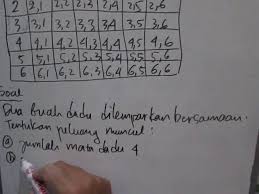 2 2,1 2,2 2,3 2,4 2,5 2,6
3 3,1 3,2 3,3 3,4 3,5 3,6
4 4,1 4,2 4,3 4,4 4,5 4,6
5 5,1 5,2 5,3 5,4 5,5 5,6
6 6,1 6,2 6,3 6,4 6,5 6,6
Soal
Dua buah dadu dilemparkan bersamaan.
Tentukan peluang muncul :
a jumlah mata dadu 4
b